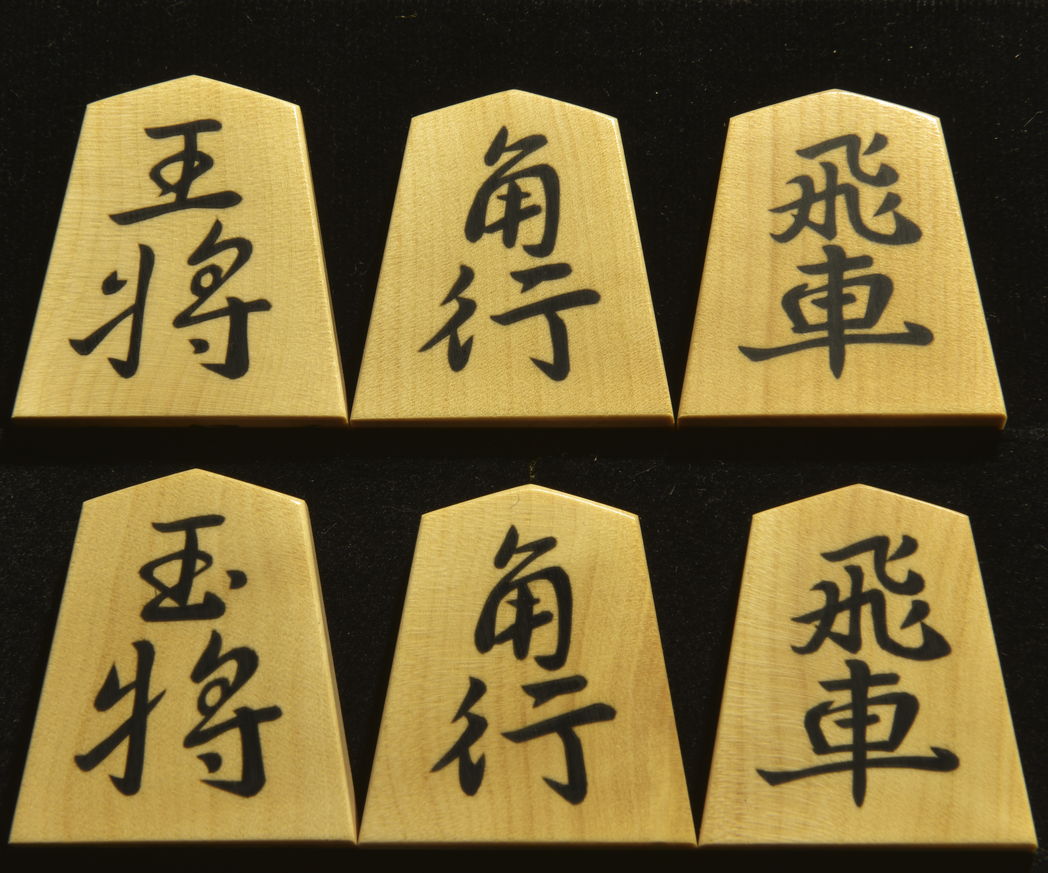 王将
角行
飛車
玉将
角行
飛車